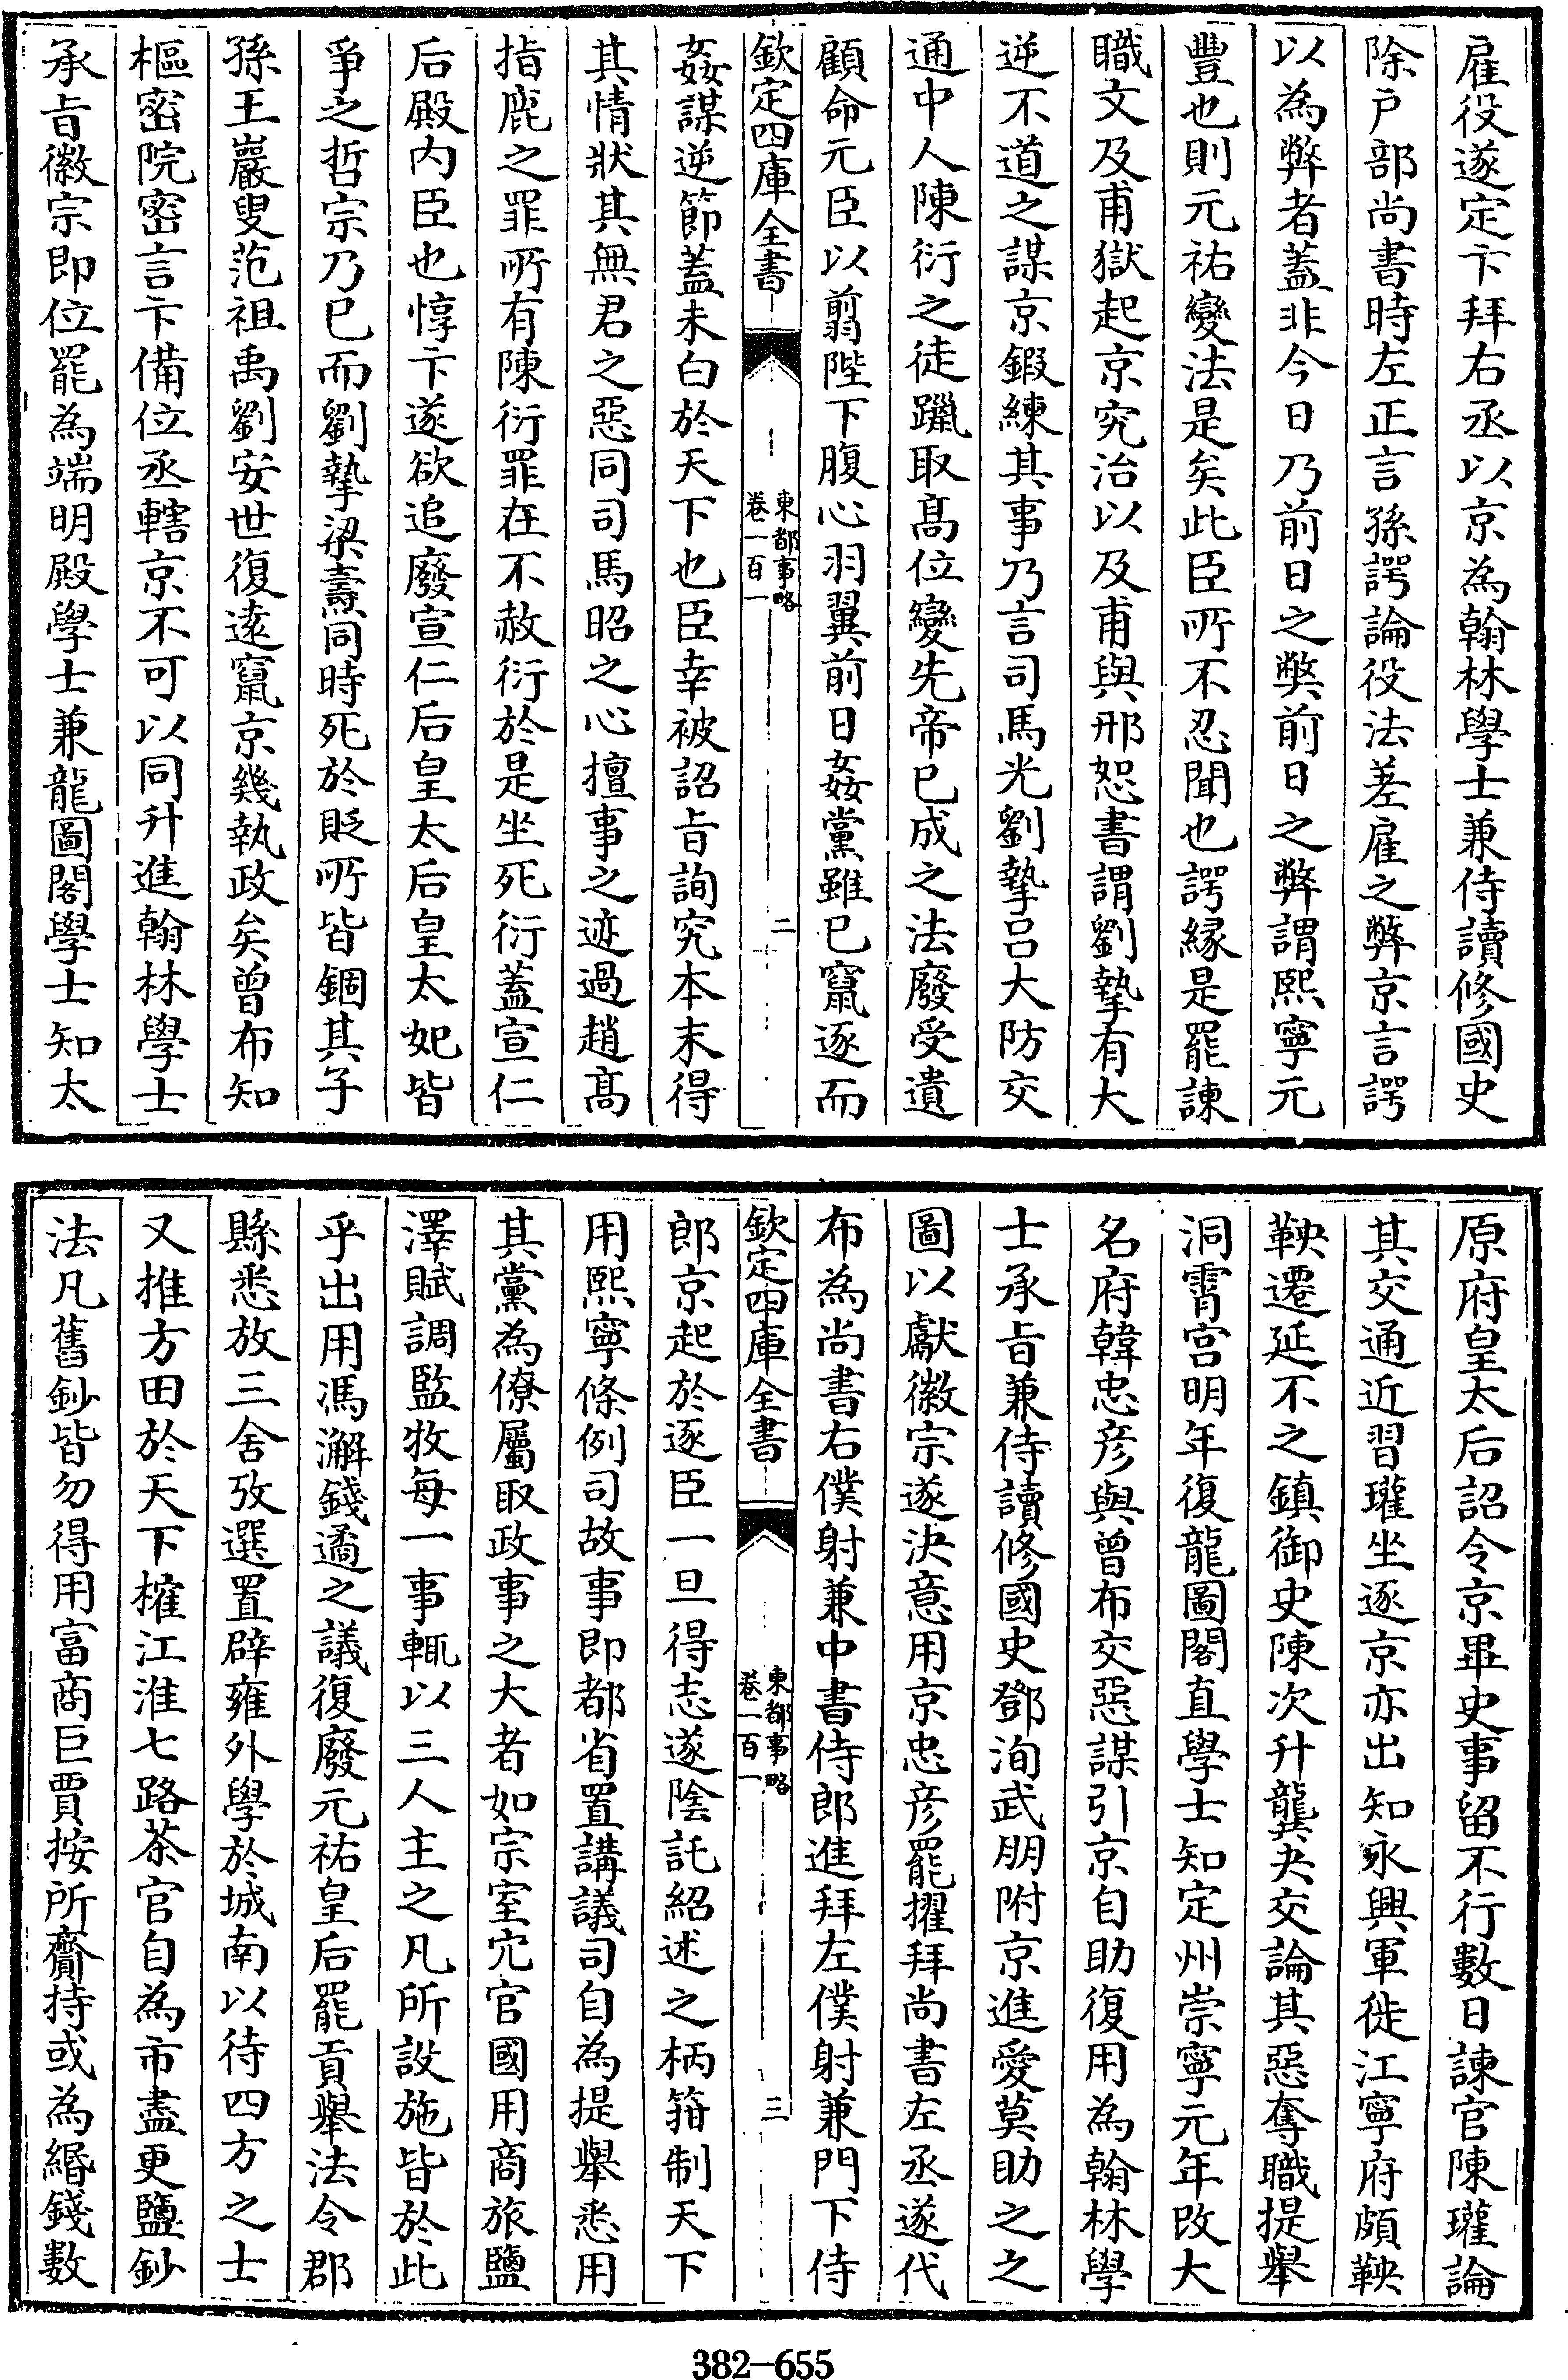 雇役遂定卞拜右丞以京為翰林學士兼侍讀修國史
除户部尚書時左正言孫諤論役法差雇之弊京言諤
以為弊者蓋非今日乃前日之弊前日之弊謂熙寧元
豐也則元祐變法是矣此臣所不忍聞也諤緣是罷諫
職文及甫獄起京究治以及甫與邢恕書謂劉摯有大
逆不道之謀京鍜練其事乃言司馬光劉摯吕大防交
通中人陳衍之徒躐取髙位變先帝已成之法廢受遺
顧命元臣以翦陛下腹心羽翼前日姦黨雖已竄逐而
欽定四庫全書
東都事略
卷一百一
二
姦謀逆節蓋未白於天下也臣幸被詔㫖詢究本末得
其情狀其無君之惡同司馬昭之心擅事之迹過趙髙
指鹿之罪所有陳衍罪在不赦衍於是坐死衍蓋宣仁
后殿内臣也惇卞遂欲追廢宣仁后皇太后皇太妃皆
爭之哲宗乃已而劉摯梁燾同時死於貶所皆錮其子
孫王巖叟范祖禹劉安世復逺竄京幾執政矣曾布知
樞密院密言卞備位丞轄京不可以同升進翰林學士
承㫖徽宗即位罷為端明殿學士兼龍圖閣學士知太
原府皇太后詔令京畢史事留不行數日諫官陳瓘論
其交通近習瓘坐逐京亦出知永興軍徙江寧府頗鞅
鞅遷延不之鎮御史陳次升龔夬交論其惡奪職提舉
洞霄宫明年復龍圖閣直學士知定州崇寧元年改大
名府韓忠彦與曾布交惡謀引京自助復用為翰林學
士承㫖兼侍讀修國史鄧洵武朋附京進愛莫助之之
圖以獻徽宗遂決意用京忠彦罷擢拜尚書左丞遂代
布為尚書右僕射兼中書侍郎進拜左僕射兼門下侍
欽定四庫全書
東都事略
卷一百一
三
郎京起於逐臣一旦得志遂陰託紹述之柄箝制天下
用熙寧條例司故事即都省置講議司自為提舉悉用
其黨為僚屬取政事之大者如宗室宂官國用商旅鹽
澤賦調監牧每一事輒以三人主之凡所設施皆於此
乎出用馮澥錢遹之議復廢元祐皇后罷貢舉法令郡
縣悉放三舍攷選置辟雍外學於城南以待四方之士
又推方田於天下榷江淮七路茶官自為市盡更鹽鈔
法凡舊鈔皆勿得用富商巨賈按所齎持或為緡錢數
382-655